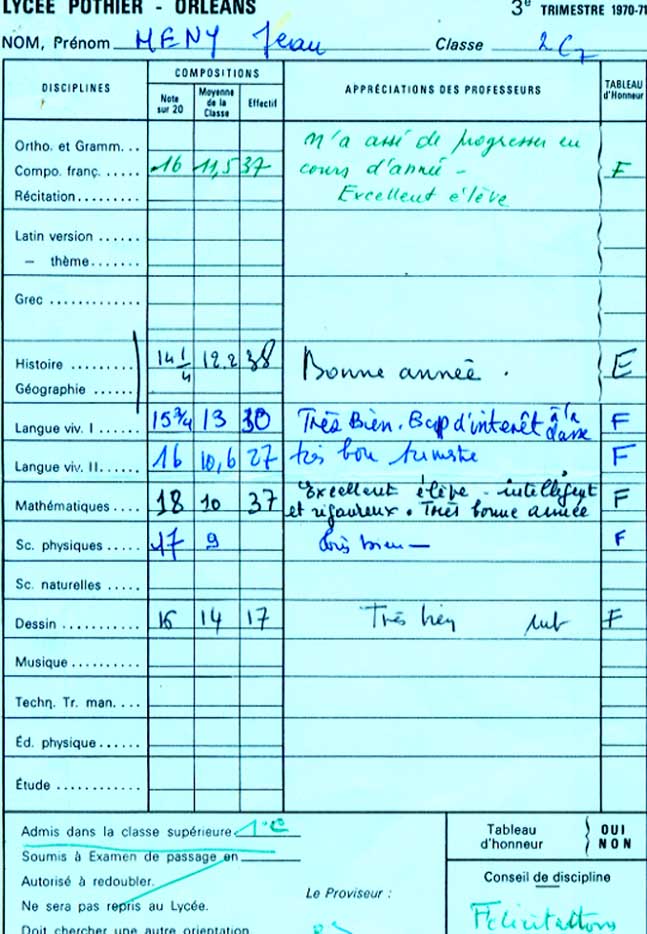 LYCÉE POTHIER - ORLÉANS 3e TRIMESTRE 1970-71
NOM, Prénom MENY Jean Classe 2C7
DISCIPLINES COMPOSITIONS APPRÉCIATIONS DES PROFESSEURS TABLEAU d'Honneur
Note sur 20 Moyenne de la Classe Effectif
Ortho. et Gramm. .. n'a cessé de progresser en
Compo. franç. ..... 16 11,5 37 cours d'année - F
Récitation ......... Excellent élève
Latin version ......
— thème .......
Grec .............
Histoire ......... 14 1/4 12.2 38 Bonne année . E
Géographie ......
Langue viv. I .... 15 3/4 13 30 Très Bien. Bcp d'interêt à la classe F
Langue viv. II.... 16 10,6 27 très bon trimestre F
Mathématiques .... 18 10 37 Excellent élève - intelligent F
et rigoureux. Très bonne année
Sc. physiques ..... 17 9 très bien — F
Sc. naturelles .....
Dessin ........... 16 14 17 Très bien F
Musique ..........
Techn. Tr. man. ...
Éd. physique ......
Étude ............
Admis dans la classe supérieure 1°C Tableau d'honneur OUI NON
Soumis à Examen de passage en
Autorisé à redoubler. Conseil de discipline
Ne sera pas repris au Lycée. Le Proviseur :
Doit chercher une autre orientation Félicitations